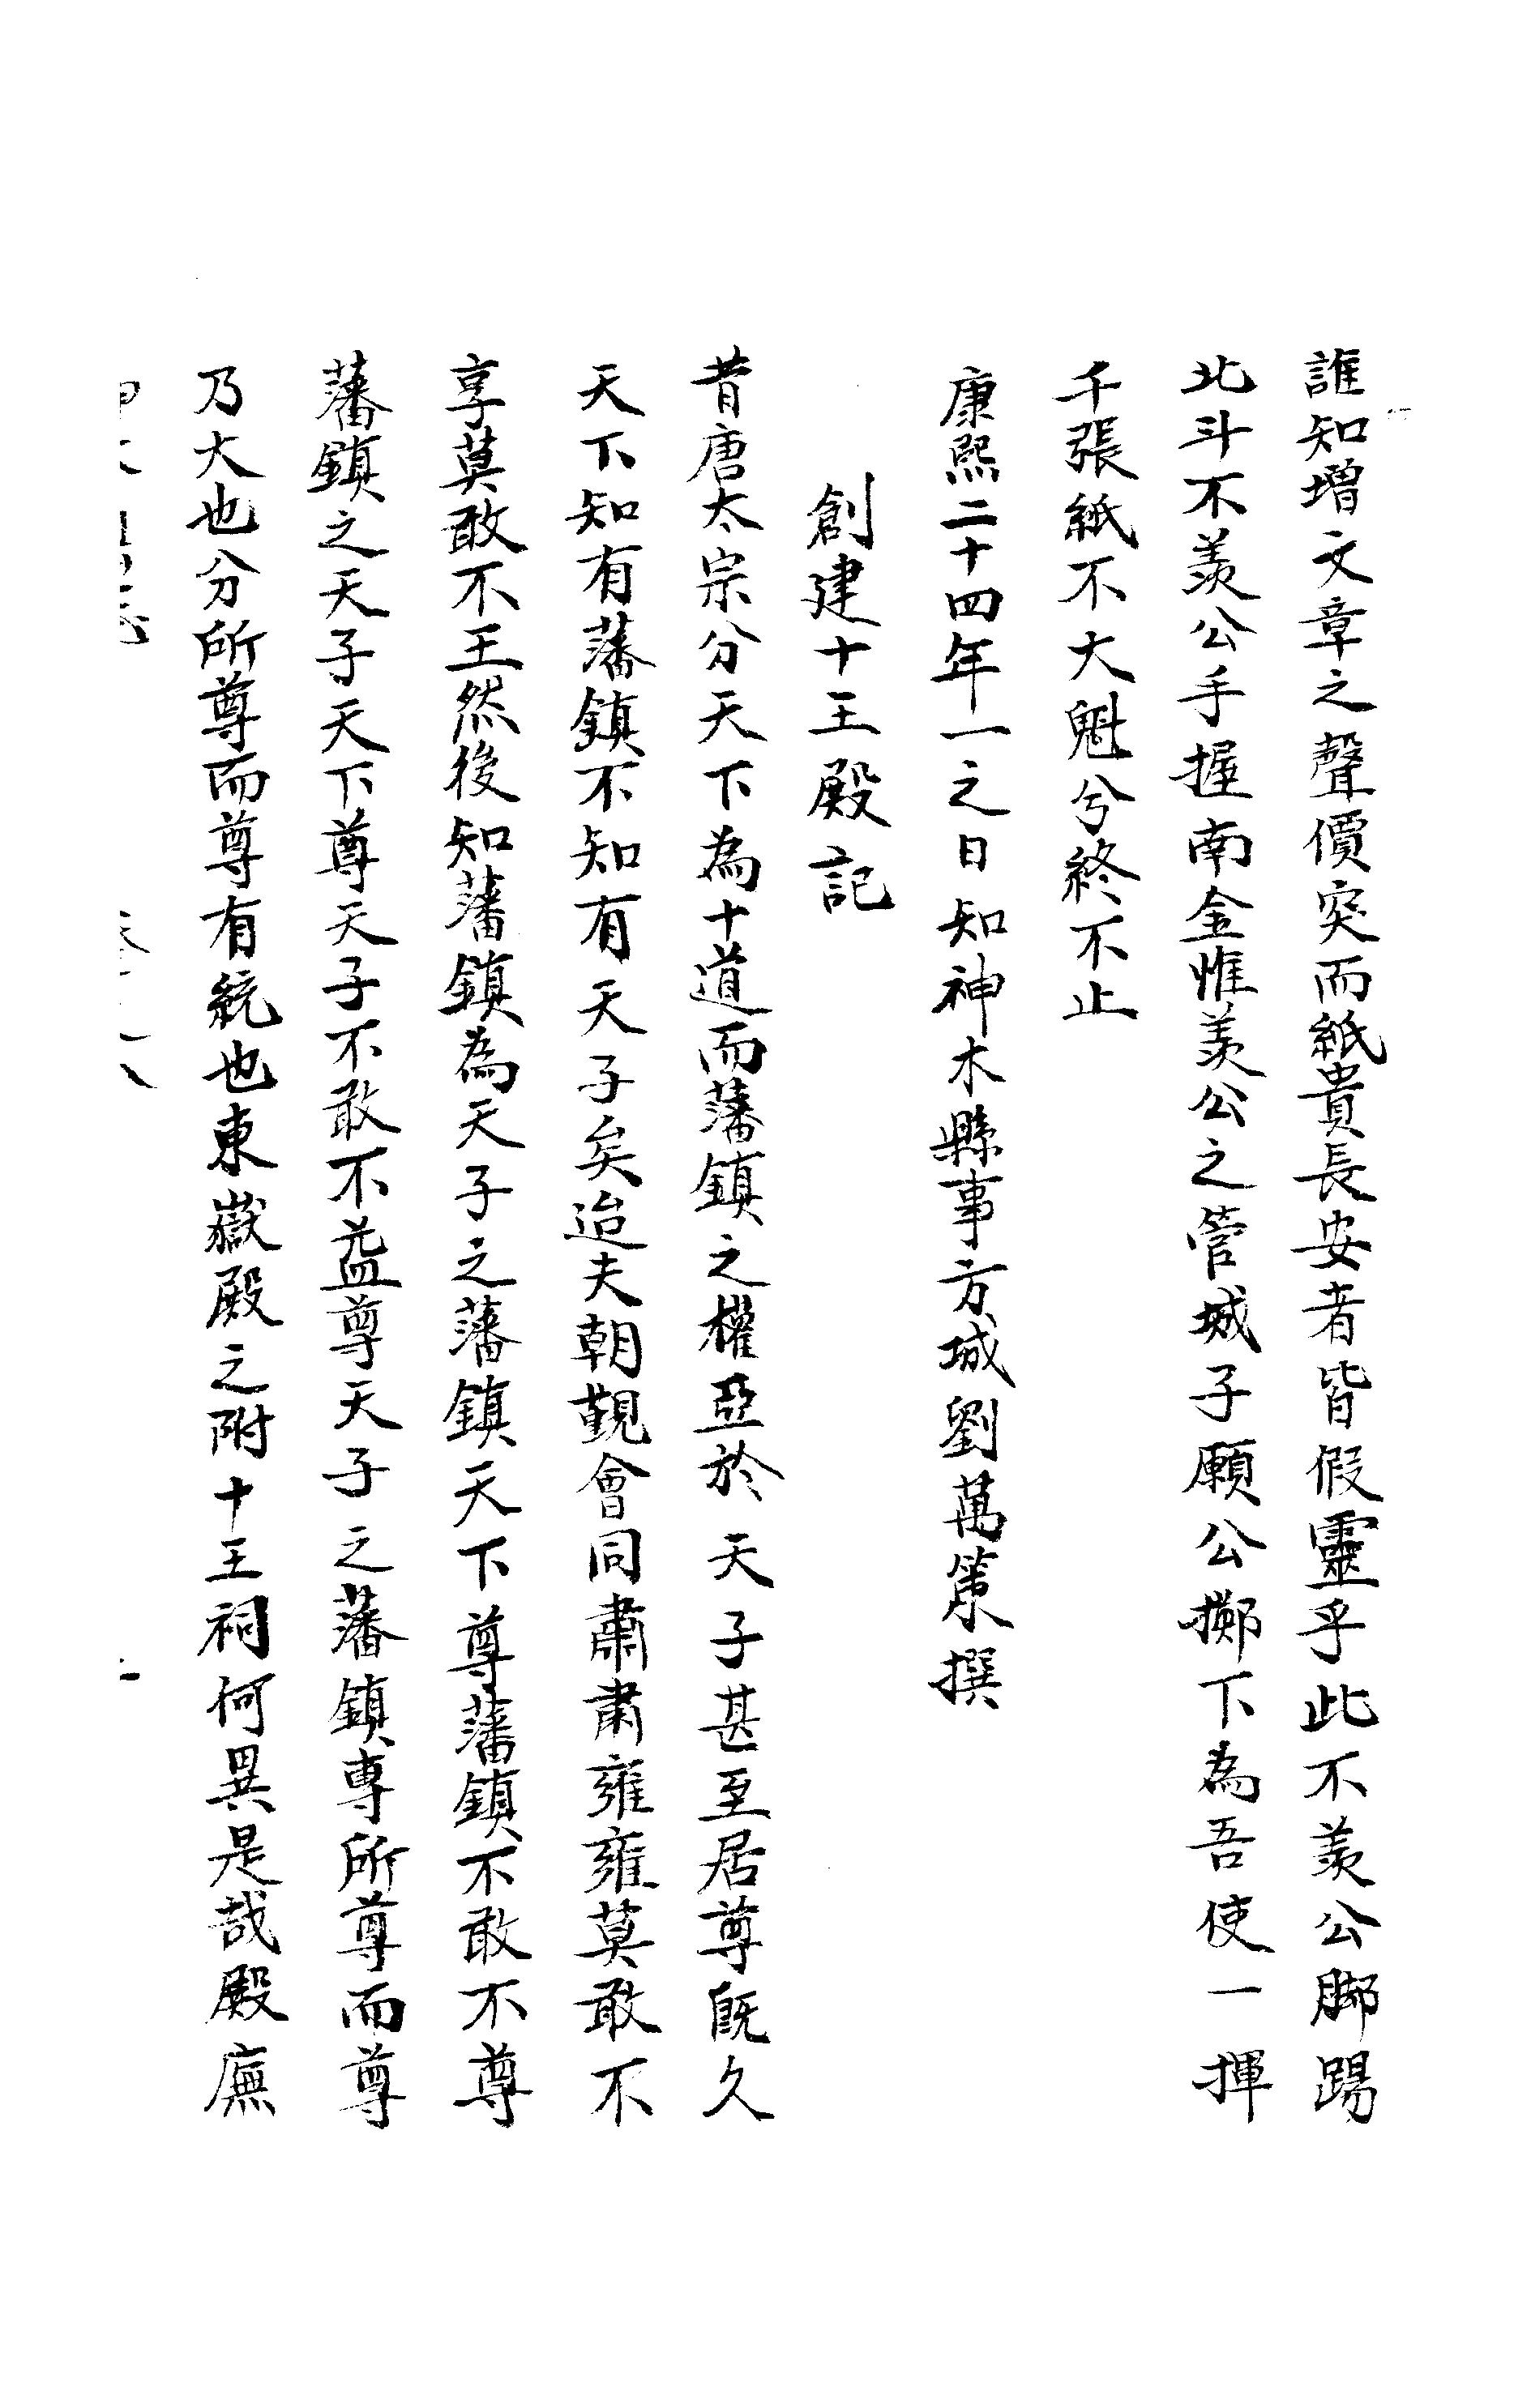 誰知增文章之聲價突而紙貴長安者皆假靈乎此不羨公腳踢
北斗不羨公手握南金惟羨公之管城子願公擲下為吾使一揮
千張紙不大魁兮終不止
康熙二十四年一之日知神木縣事方城劉萬策撰
創建十王殿記
昔唐太宗分天下為十道而藩鎮之權亞於天子甚至居尊既久
天下知有藩鎮不知有天子矣迨夫朝覲會同肅肅雍雍莫敢不
享莫敢不王然後知藩鎮為天子之藩鎮天下尊藩鎮不敢不尊
藩鎮之天子天下尊天子不敢不益尊天子之藩鎮專所尊而尊
乃大也分所尊而尊有統也東嶽殿之附十王祠何異是哉殿廡